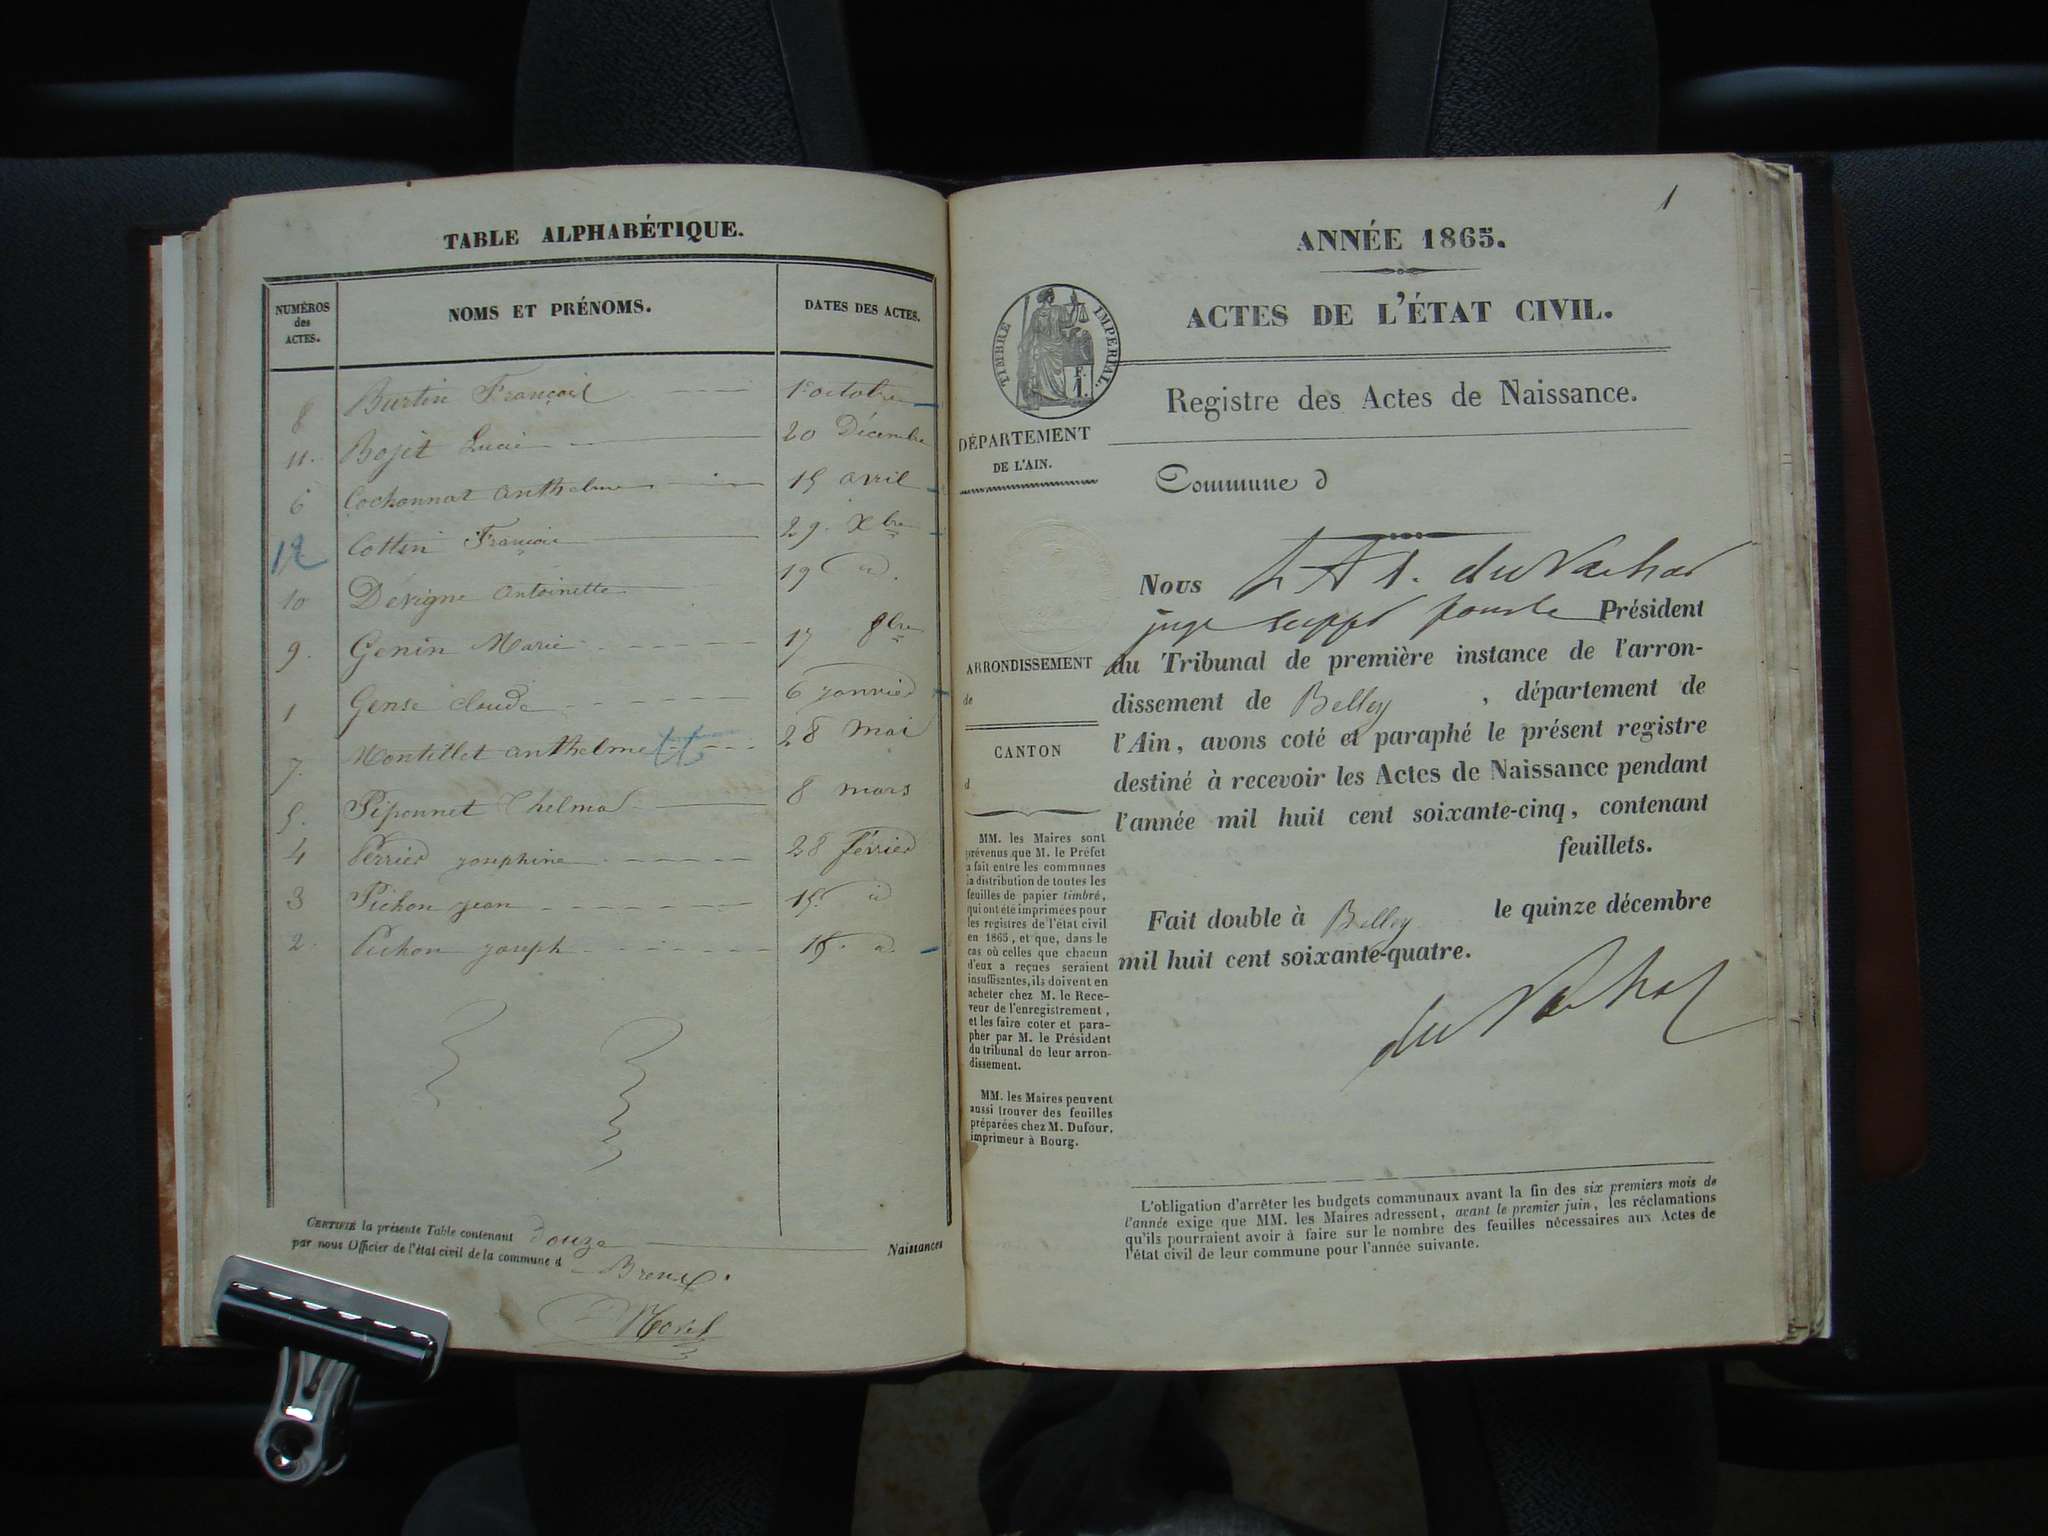 TABLE ALPHABÉTIQUE.
NUMÉROS des ACTES. NOMS ET PRÉNOMS. DATES DES ACTES.
8 Burtin François 1er octobre
11. Bojet Lucie 20 Décembre
6 Cochonnat anthelme 15 avril
12 Cottin François 29. Xbre
10 Dévigne antoinette 19 id.
9. Genin Marie 17 8bre
1 Gense claude 6 janvier
7. Montillet anthelme 28 mai
5. Piponnet Thelma 8 mars
4 Perrier josephine 28 février
3 Pichon jean 15. id
2. Pichon joseph 15. d.
CERTIFIÉ la présente Table contenant douze Naissances
par nous Officier de l'état civil de la commune d
Morel
1
ANNÉE 1865.
ACTES DE L'ÉTAT CIVIL.
TIMBRE IMPERIAL.
1 F.
Registre des Actes de Naissance.
DÉPARTEMENT
DE L'AIN.
Commune d
Nous du Vachat
juge supp pour le Président
du Tribunal de première instance de l'arron-
dissement de Belley, département de
l'Ain, avons coté et paraphé le présent registre
destiné à recevoir les Actes de Naissance pendant
l'année mil huit cent soixante-cinq, contenant
feuillets.
Fait double à Belley le quinze décembre
mil huit cent soixante-quatre.
du Vachat
ARRONDISSEMENT
de
CANTON
d
MM. les Maires sont
prévenus que M. le Préfet
a fait entre les communes
la distribution de toutes les
feuilles de papier timbré,
qui ont été imprimées pour
les registres de l'état civil
en 1865, et que, dans le
cas où celles que chacun
d'eux a reçues seraient
insuffisantes, ils doivent en
acheter chez M. le Rece-
veur de l'enregistrement,
et les faire coter et para-
pher par M. le Président
du tribunal de leur arron-
dissement.
MM. les Maires peuvent
aussi trouver des feuilles
préparées chez M. Dufour,
imprimeur à Bourg.
L'obligation d'arrêter les budgets communaux avant la fin des six premiers mois de
l'année exige que MM. les Maires adressent, avant le premier juin, les réclamations
qu'ils pourraient avoir à faire sur le nombre des feuilles nécessaires aux Actes de
l'état civil de leur commune pour l'année suivante.